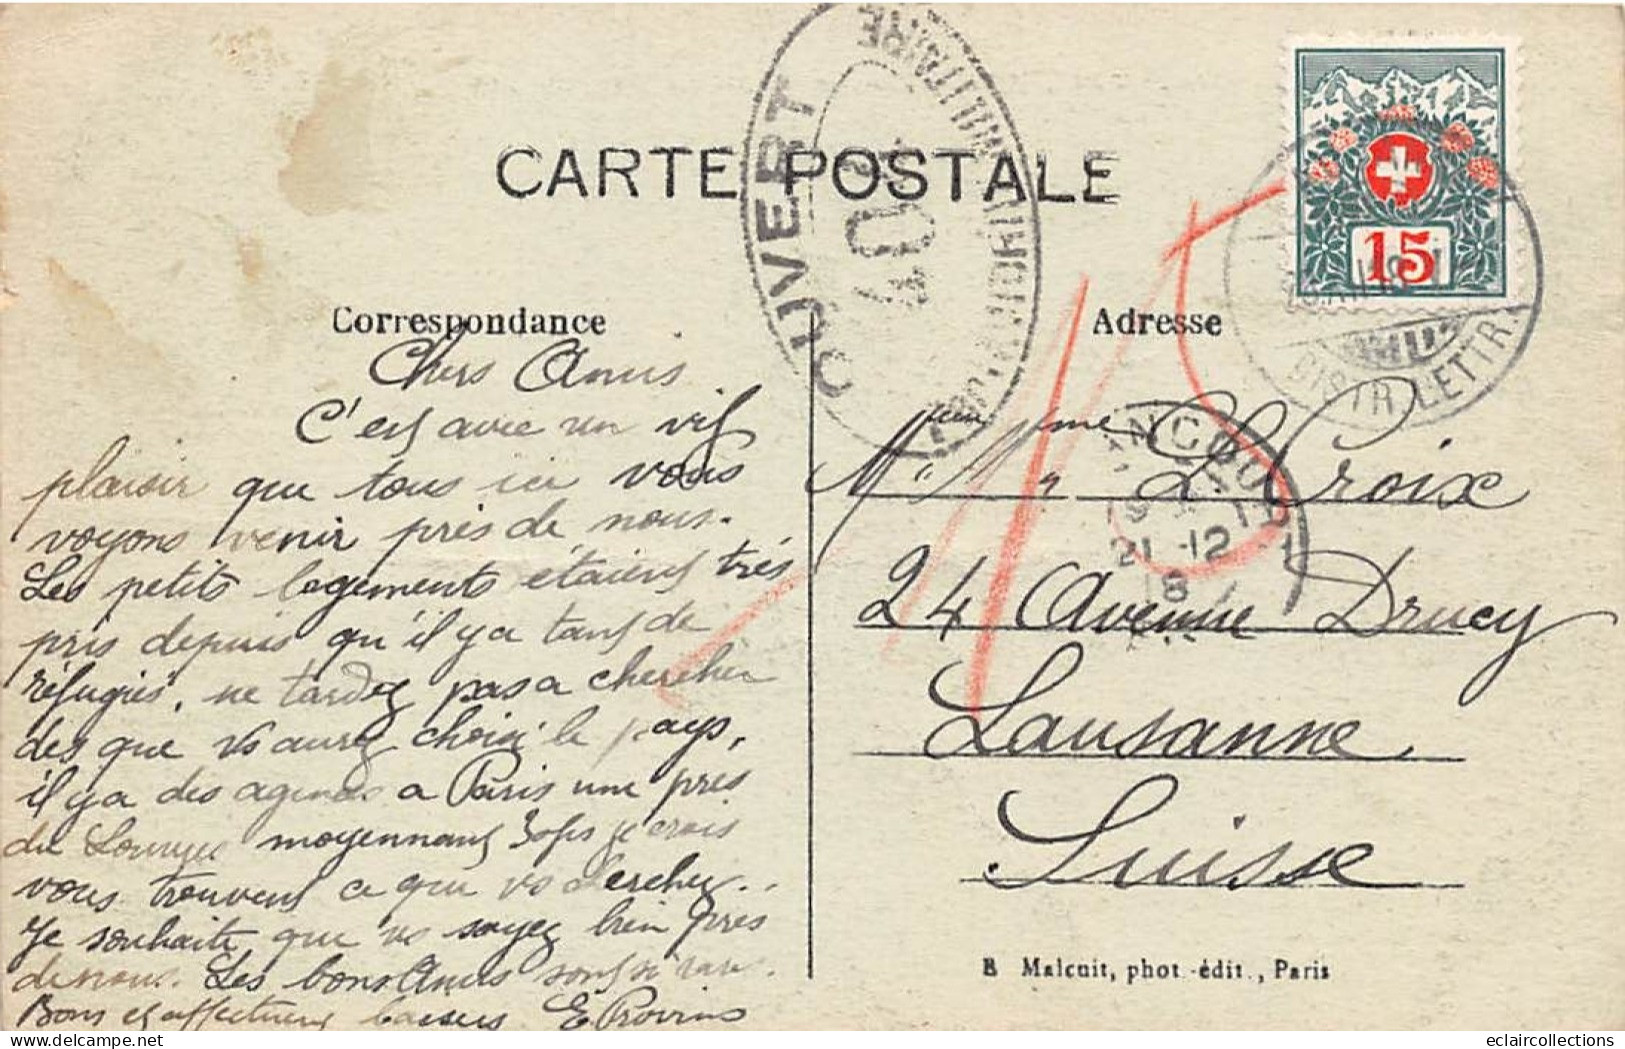 CARTE POSTALE
OUVERT
PAR L'AUTORITÉ MILITAIRE
401
15
15
DISTR. LETTR.
21-12
18
Correspondance
Adresse
Chers Amis.
C'est avec un vif
plaisir que tous ici vous
voyons venir près de nous.
Les petits logements étaient très
pris depuis qu'il y a tant de
réfugiés, ne tardez pas a chercher
des que vs aurez choisi le pays,
il y a des agences a Paris une près
du Louvre moyennant je crois
vous trouvent ce que vs cherchez..
Je souhaite que vs soyez bien près
de nous. Les bons Amis sont si rares.
Bons et affectueux baisers E Provins
Mr Mme LeCroix
24 Avenue Drucy
Lausanne.
Suisse
B Malcuit, phot.-édit., Paris
eclaircollections